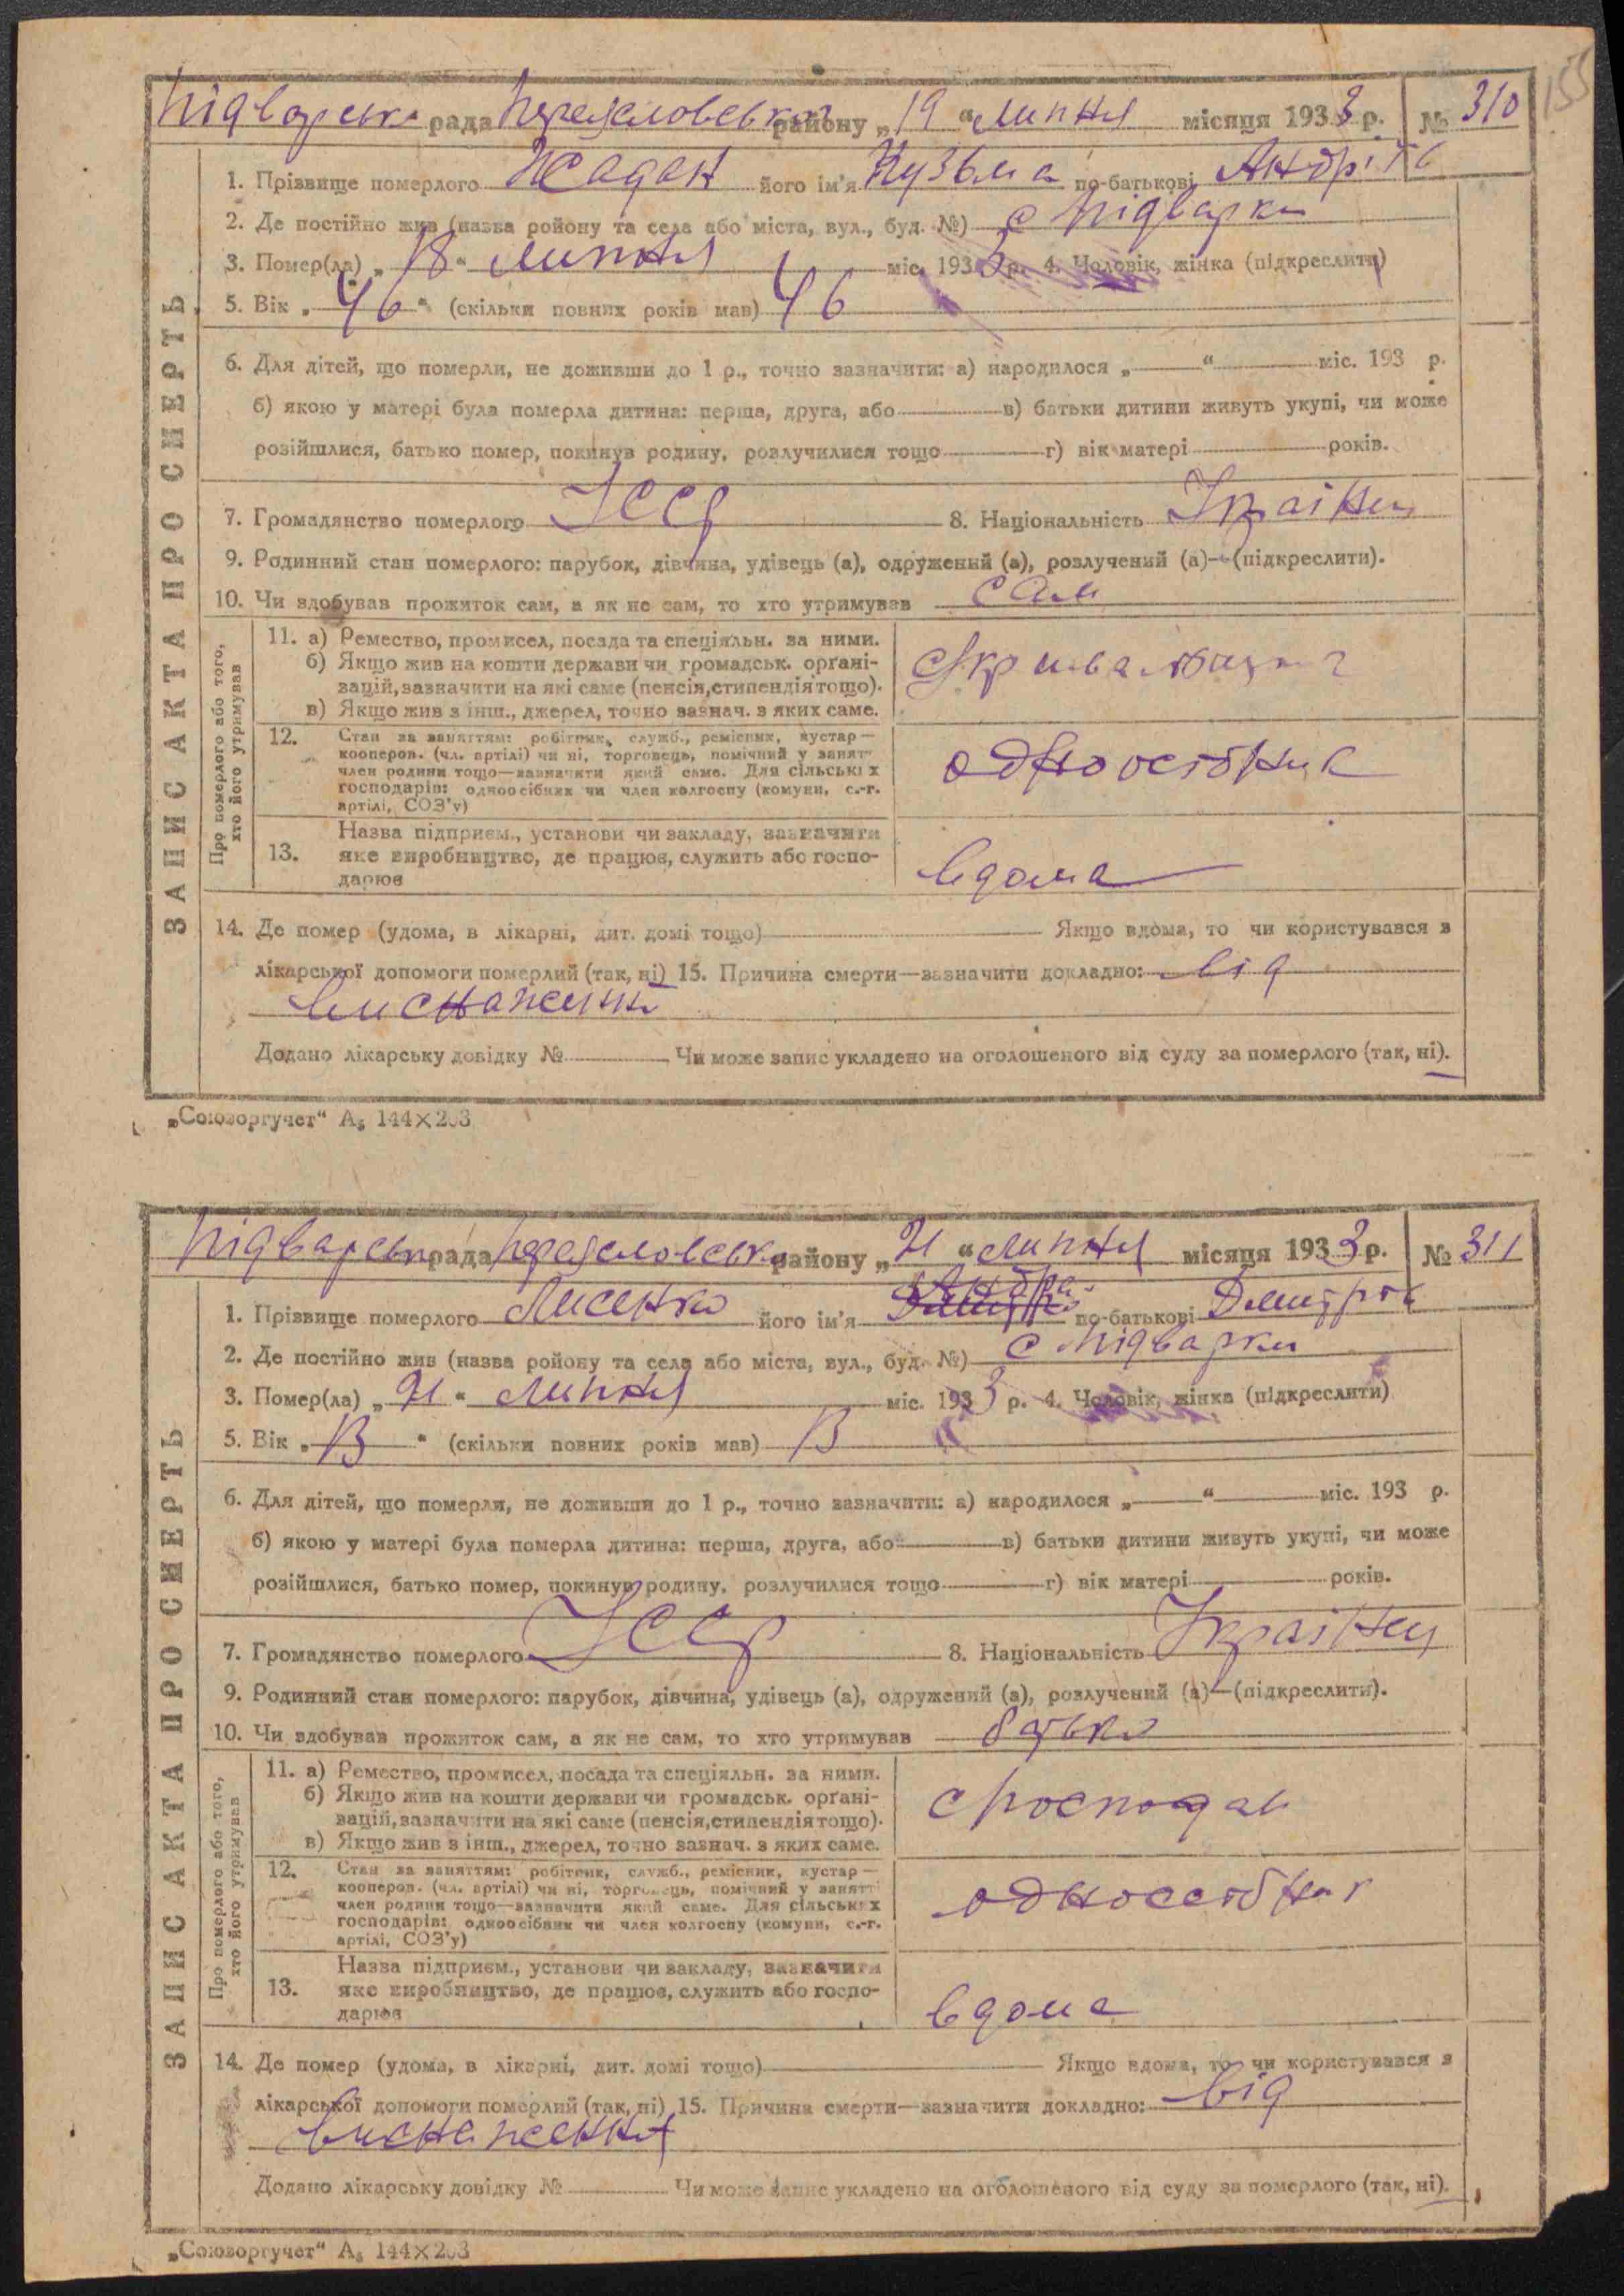 155
Підварська рада Переяславська району „19“ Липня місяця 1933 р. № 310
1. Прізвище померлого Жадан його ім'я Кузьма по-батькові Андрі
2. Де постійно жив (назва ройону та села або міста, вул., буд. №) с Підварки
3. Помер(ла) „18“ Липня міс. 193 р. 4. Чоловік, жінка (підкреслити)
5. Вік „46“ (скільки повних років мав) 46
6. Для дітей, що померли, не доживши до 1 р., точно зазначити: а) народилося „ “ міс. 193 р.
б) якою у матері була померла дитина: перша, друга, або в) батьки дитини живуть укупі, чи може
розійшлися, батько помер, покинув родину, розлучилися тощо г) вік матері років.
7. Громадянство померлого УССР 8. Національність Українец
9. Родинний стан померлого: парубок, дівчина, удівець (а), одружений (а), розлучений (а)—(підкреслити).
10. Чи здобував прожиток сам, а як не сам, то хто утримував сам
ЗАПИС АКТА ПРО СМЕРТЬ
Про померлого або того, хто його утримував
11. а) Ремество, промисел, посада та спеціяльн. за ними.
б) Якщо жив на кошти держави чи громадськ. орґані-
зацій, зазначити на які саме (пенсія, стипендія тощо).
в) Якщо жив з інш., джерел, точно зазнач. з яких саме.
12. Стан за заняттям: робітник, служб., ремісник, кустар—
кооперов. (чл. артілі) чи ні, торговець, помічний у занятт
член родини тощо—зазначити який саме. Для сільських
господарів: одноосібник чи член колгоспу (комуни, с.-г.
артілі, СОЗ'у) одноосібник
Назва підприєм., установи чи закладу, зазначити
13. яке виробництво, де працює, служить або госпо-
дарює вдома
14. Де помер (удома, в лікарні, дит. домі тощо) Якщо вдома, то чи користувався з
лікарської допомоги померлий (так, ні) 15. Причина смерти—зазначити докладно: від
виснаження
Додано лікарську довідку № Чи може запис укладено на оголошеного від суду за померлого (так, ні).
„Союзоргучет“ А5 144×203
Підварська рада Переяславська району „21“ Липня місяця 1933 р. № 311
1. Прізвище померлого Лисенко його ім'я по-батькові Дмитров
2. Де постійно жив (назва ройону та села або міста, вул., буд. №) с Підварки
3. Помер(ла) „21“ Липня міс. 1933 р. 4. Чоловік, жінка (підкреслити)
5. Вік „13“ (скільки повних років мав) 13
6. Для дітей, що померли, не доживши до 1 р., точно зазначити: а) народилося „ “ міс. 193 р.
б) якою у матері була померла дитина: перша, друга, або в) батьки дитини живуть укупі, чи може
розійшлися, батько помер, покинув родину, розлучилися тощо г) вік матері років.
7. Громадянство померлого УССР 8. Національність Українец
9. Родинний стан померлого: парубок, дівчина, удівець (а), одружений (а), розлучений (а)—(підкреслити).
10. Чи здобував прожиток сам, а як не сам, то хто утримував батько
ЗАПИС АКТА ПРО СМЕРТЬ
Про померлого або того, хто його утримував
11. а) Ремество, промисел, посада та спеціяльн. за ними.
б) Якщо жив на кошти держави чи громадськ. орґані-
зацій, зазначити на які саме (пенсія, стипендія тощо).
в) Якщо жив з інш., джерел, точно зазнач. з яких саме.
12. Стан за заняттям: робітник, служб., ремісник, кустар—
кооперов. (чл. артілі) чи ні, торговець, помічний у занятт
член родини тощо—зазначити який саме. Для сільських
господарів: одноосібник чи член колгоспу (комуни, с.-г.
артілі, СОЗ'у) одноосібник
Назва підприєм., установи чи закладу, зазначити
13. яке виробництво, де працює, служить або госпо-
дарює вдома
14. Де помер (удома, в лікарні, дит. домі тощо) Якщо вдома, то чи користувався з
лікарської допомоги померлий (так, ні) 15. Причина смерти—зазначити докладно: від
виснаження
Додано лікарську довідку № Чи може запис укладено на оголошеного від суду за померлого (так, ні).
„Союзоргучет“ А5 144×203